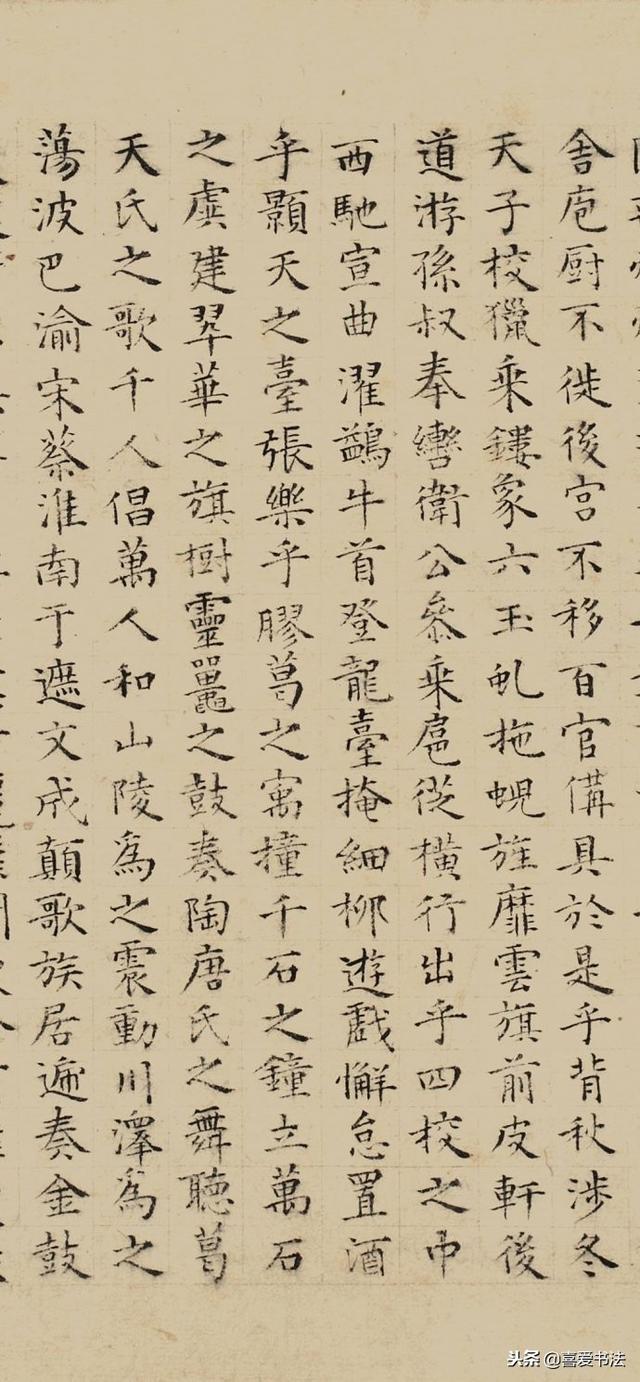 舎庖厨不徙後宮不移百官俻具於是乎背秋涉冬
天子校獵乘鏤象六玉虬拖蜺旌靡雲旗前皮軒後
道游孫叔奉轡衛公叅乘扈從橫行出乎四校之中
西馳宣曲濯鷁牛首登龍臺掩細柳遊戲懈怠置酒
乎顥天之臺張樂乎膠葛之寓撞千石之鐘立萬石
之虡建翠華之旗樹靈鼉之鼓奏陶唐氏之舞聽葛
天氏之歌千人倡萬人和山陵為之震動川澤為之
蕩波巴渝宋蔡淮南于遮文成顛歌族居遞奏金鼓
头条 @喜爱书法